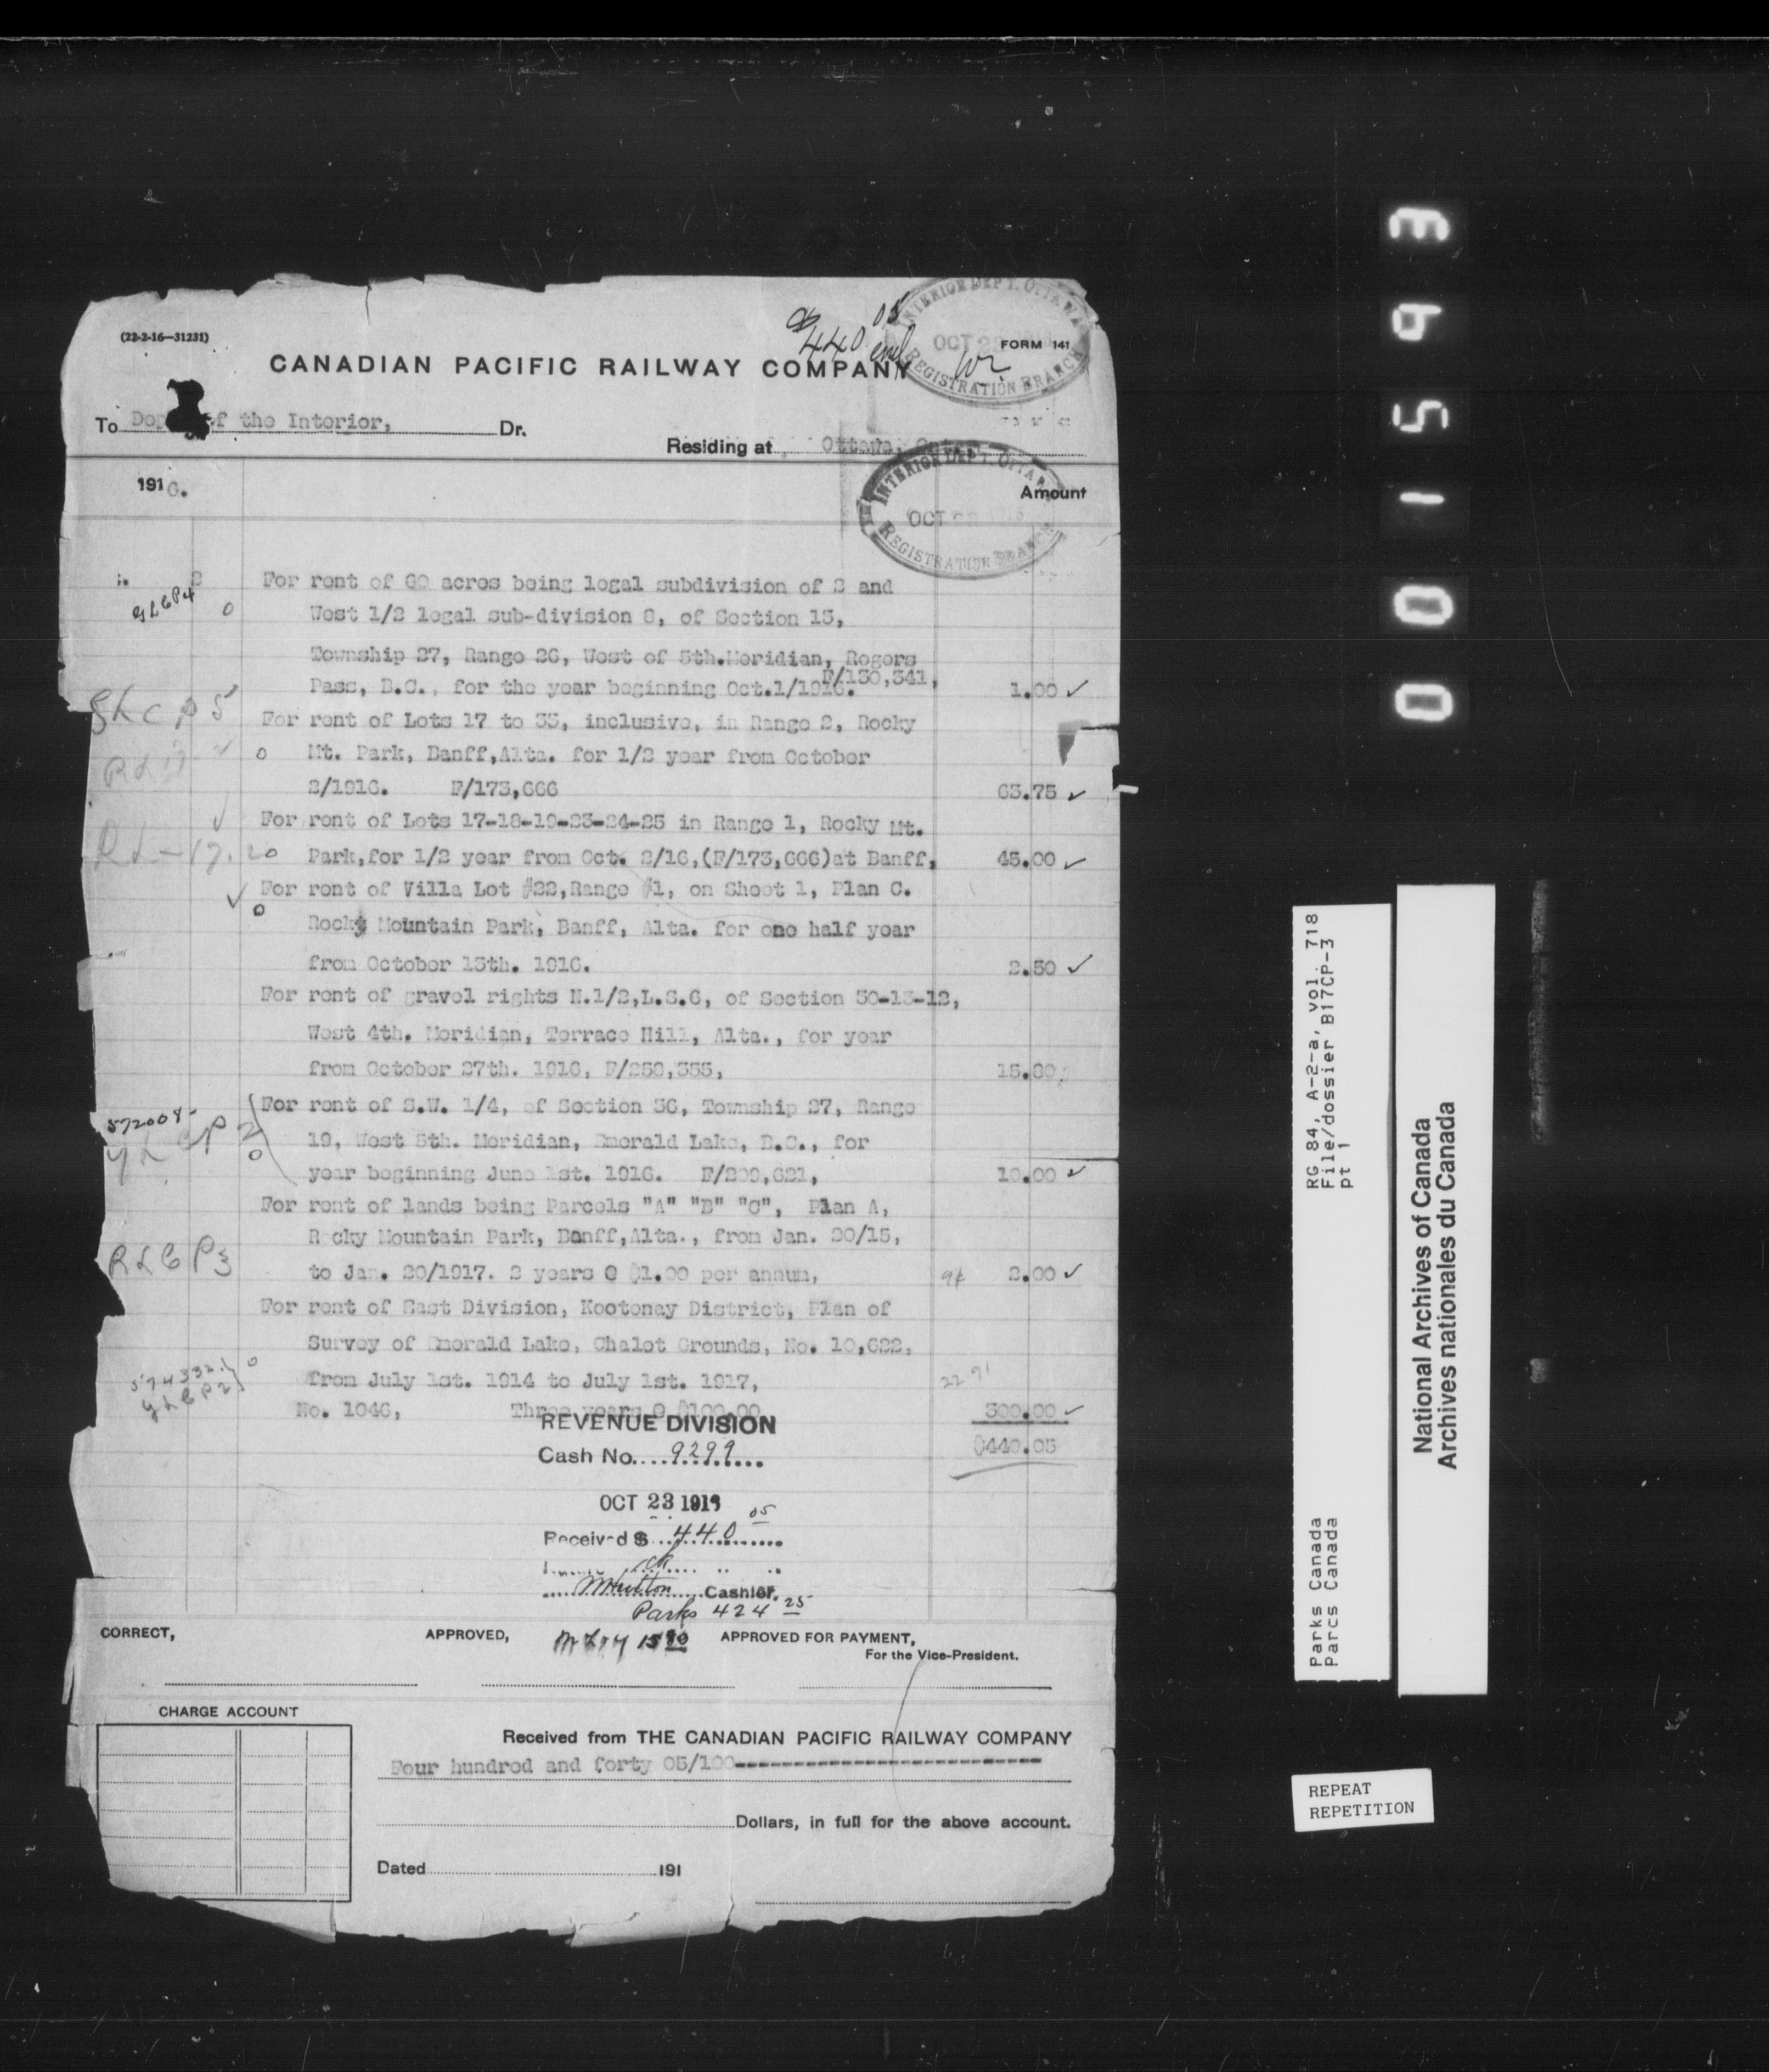 (22-2-16—31231)
$440 05
encl
INTERIOR DEPT. OTTAWA
OCT
REGISTRATION BRANCH
FORM 141
CANADIAN PACIFIC RAILWAY COMPANY
To of the Interior, Dr.
Residing at Ottawa,
1916.
Amount
INTERIOR DEPT. OTTAWA
OCT
REGISTRATION BRANCH
2 For rent of 60 acres being legal subdivision of 2 and
West 1/2 legal sub-division 8, of Section 13,
Township 27, Range 26, West of 5th.Meridian, Rogers
F/130,341,
Pass, B.C., for the year beginning Oct.1/1916. 1.00 ✓
For rent of Lots 17 to 33, inclusive, in Range 2, Rocky
Mt. Park, Banff,Alta. for 1/2 year from October
2/1916. F/173,666 63.75 ✓
For rent of Lots 17-18-19-23-24-25 in Range 1, Rocky Mt.
Park,for 1/2 year from Oct. 2/16,(F/173,666)at Banff, 45.00 ✓
For rent of Villa Lot #22,Range #1, on Sheet 1, Plan C.
Rocky Mountain Park, Banff, Alta. for one half year
from October 13th. 1916. 2.50 ✓
For rent of gravel rights N.1/2,L.S.6, of Section 30-13-12,
West 4th. Meridian, Terrace Hill, Alta., for year
from October 27th. 1916, 15.80
572008
For rent of S.W. 1/4, of Section 36, Township 27, Range
19, West 5th. Meridian, Emerald Lake, B.C., for
year beginning June 1st. 1916. F/209,621, 10.00 ✓
For rent of lands being Parcels "A" "B" "C", Plan A,
Rocky Mountain Park, Banff,Alta., from Jan. 20/15,
to Jan. 20/1917. 2 years @ $1.00 per annum, 2.00 ✓
For rent of East Division, Kootenay District, Plan of
Survey of Emerald Lake, Chalet Grounds, No. 10,622,
574332
from July 1st. 1914 to July 1st. 1917,
No. 1046, Three years @ $100.00 300.00 ✓
$440.05
REVENUE DIVISION
Cash No. 9299
OCT 23 1916
Received $ 440 05
Cashier.
Parks 424 25
CORRECT, APPROVED, 15 80 APPROVED FOR PAYMENT,
For the Vice-President.
CHARGE ACCOUNT
Received from THE CANADIAN PACIFIC RAILWAY COMPANY
Four hundred and forty 05/100
Dollars, in full for the above account.
Dated 191
0015943
RG 84, A-2-a, vol. 718
File/dossier B17CP-3
pt 1
Parks Canada
Parcs Canada
National Archives of Canada
Archives nationales du Canada
REPEAT
REPETITION